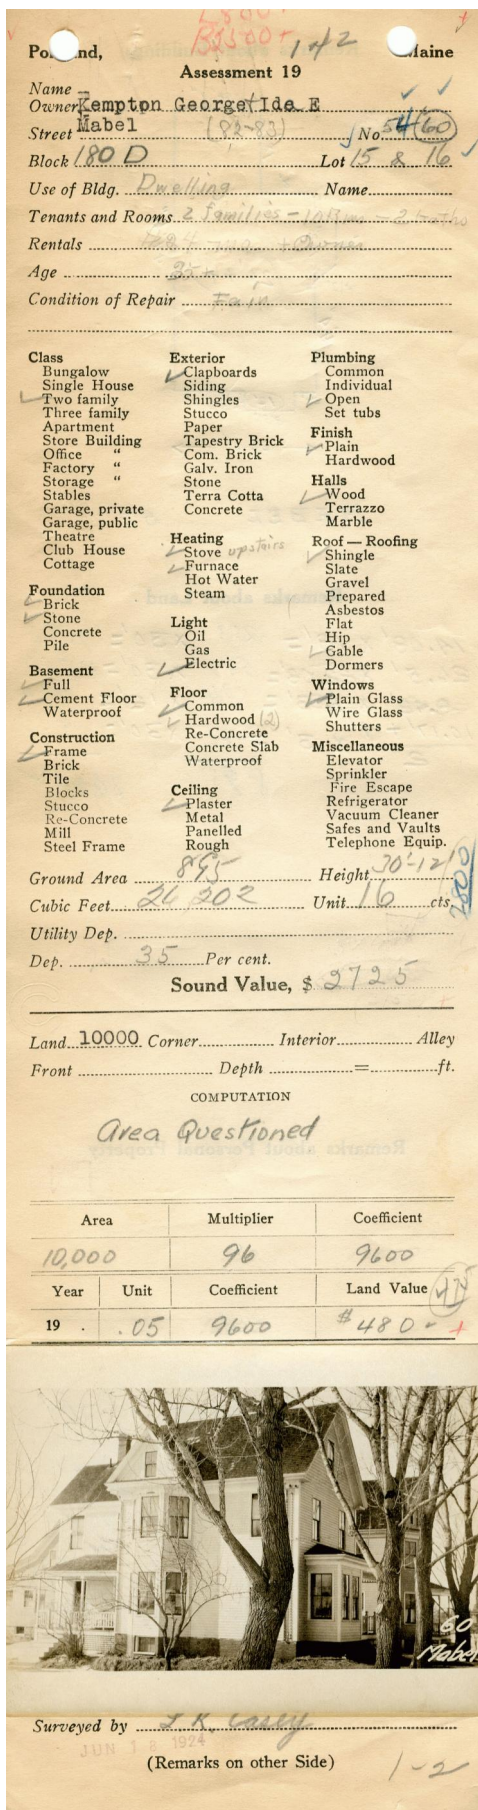 L800-
B2500+ 1+2
Portland, Maine
Assessment 19
Name
Owner Kempton George+Ida E
Street Mabel (82-83) No. 54 (60)
Block 180 D Lot 15 & 16
Use of Bldg. Dwelling Name
Tenants and Rooms 2 families - 10 Rms - 2 baths
Rentals + Owner
Age 35
Condition of Repair Fair
Class
Bungalow
Single House
✓ Two family
Three family
Apartment
Store Building
Office "
Factory "
Storage "
Stables
Garage, private
Garage, public
Theatre
Club House
Cottage
Foundation
✓ Brick
✓ Stone
Concrete
Pile
Basement
✓ Full
✓ Cement Floor
Waterproof
Construction
✓ Frame
Brick
Tile
Blocks
Stucco
Re-Concrete
Mill
Steel Frame
Exterior
✓ Clapboards
Siding
Shingles
Stucco
Paper
Tapestry Brick
Com. Brick
Galv. Iron
Stone
Terra Cotta
Concrete
Heating
✓ Stove upstairs
✓ Furnace
Hot Water
Steam
Light
Oil
Gas
✓ Electric
Floor
✓ Common
✓ Hardwood (2)
Re-Concrete
Concrete Slab
Waterproof
Ceiling
✓ Plaster
Metal
Panelled
Rough
Plumbing
Common
Individual
✓ Open
Set tubs
Finish
✓ Plain
Hardwood
Halls
✓ Wood
Terrazzo
Marble
Roof — Roofing
✓ Shingle
Slate
Gravel
Prepared
Asbestos
Flat
Hip
✓ Gable
Dormers
Windows
✓ Plain Glass
Wire Glass
Shutters
Miscellaneous
Elevator
Sprinkler
Fire Escape
Refrigerator
Vacuum Cleaner
Safes and Vaults
Telephone Equip.
Ground Area 895 Height 30'-12'
Cubic Feet 26 202 Unit 16 cts.
2800
Utility Dep.
Dep. 35 Per cent.
Sound Value, $ 2725
Land 10000 Corner Interior Alley
Front Depth = ft.
COMPUTATION
Area Questioned
Area Multiplier Coefficient
10,000 96 9600
Year Unit Coefficient Land Value
19 . .05 9600 $480- +
60
Mabel
Surveyed by L. K. Casey
JUN 18 1924
(Remarks on other Side)
1-2